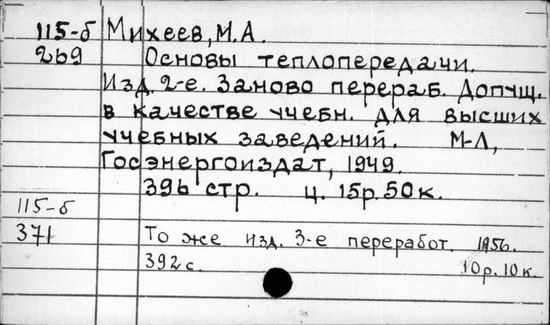 115-б Михеев, М.А.
269 Основы теплопередачи.
Изд. 2-е. Заново перераб. Допущ.
в качестве учебн. для высших
учебных заведений. М-Л,
Госэнергоиздат, 1949.
396 стр. ц. 15р. 50к.
115-б
371 То же изд. 3-е переработ. 1956.
392 с. 10р. 10к.